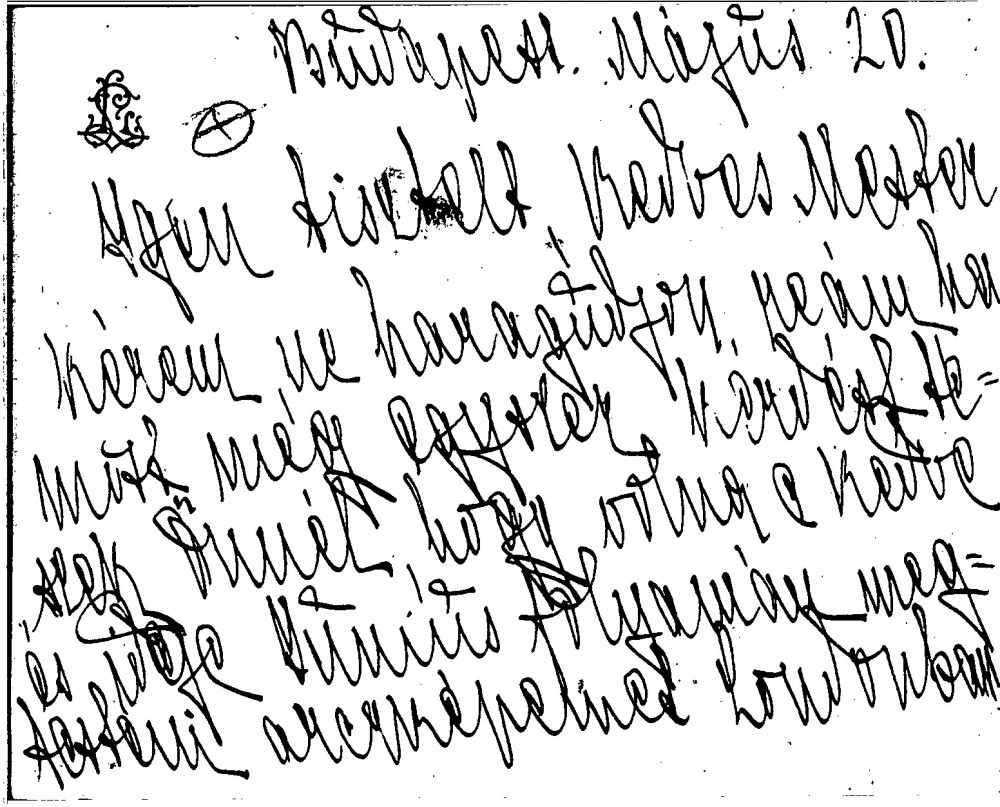 Budapest. Május 20.
Igen tisztelt kedves Mester
kérem ne haragudjon reám ha
most még egyszer kérdést te=
szek Önnél hogy volna e kedve
és ideje Június folyamán meg=
festeni arcképemet Londonban